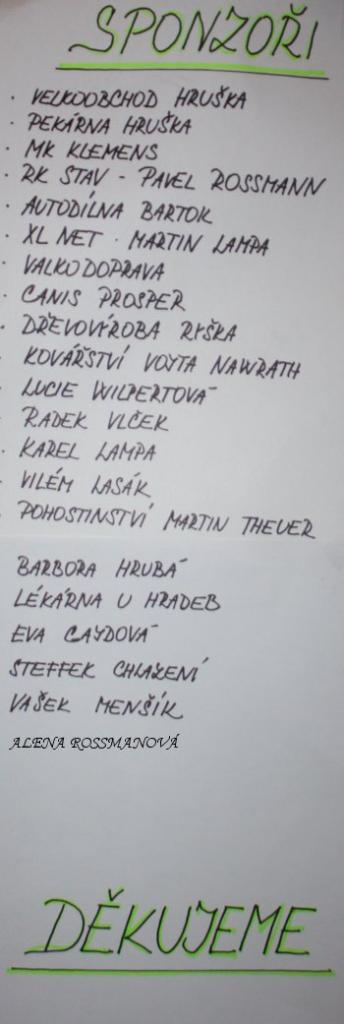 SPONZOŘI
· VELKOOBCHOD HRUŠKA
· PEKÁRNA HRUŠKA
· MK KLEMENS
· RK STAV - PAVEL ROSSMANN
· AUTODÍLNA BARTOK
· XL NET - MARTIN LAMPA
· VALKODOPRAVA
· CANIS PROSPER
· DŘEVOVÝROBA RYŠKA
· KOVÁŘSTVÍ VOJTA NAWRATH
· LUCIE WILPERTOVÁ
· RADEK VLČEK
· KAREL LAMPA
· VILÉM LASÁK
· POHOSTINSTVÍ MARTIN THEUER
BARBORA HRUBÁ
LÉKÁRNA U HRADEB
EVA CAYDOVÁ
STEFFEK CHLAZENÍ
VAŠEK MENŠÍK
ALENA ROSSMANOVÁ
DĚKUJEME